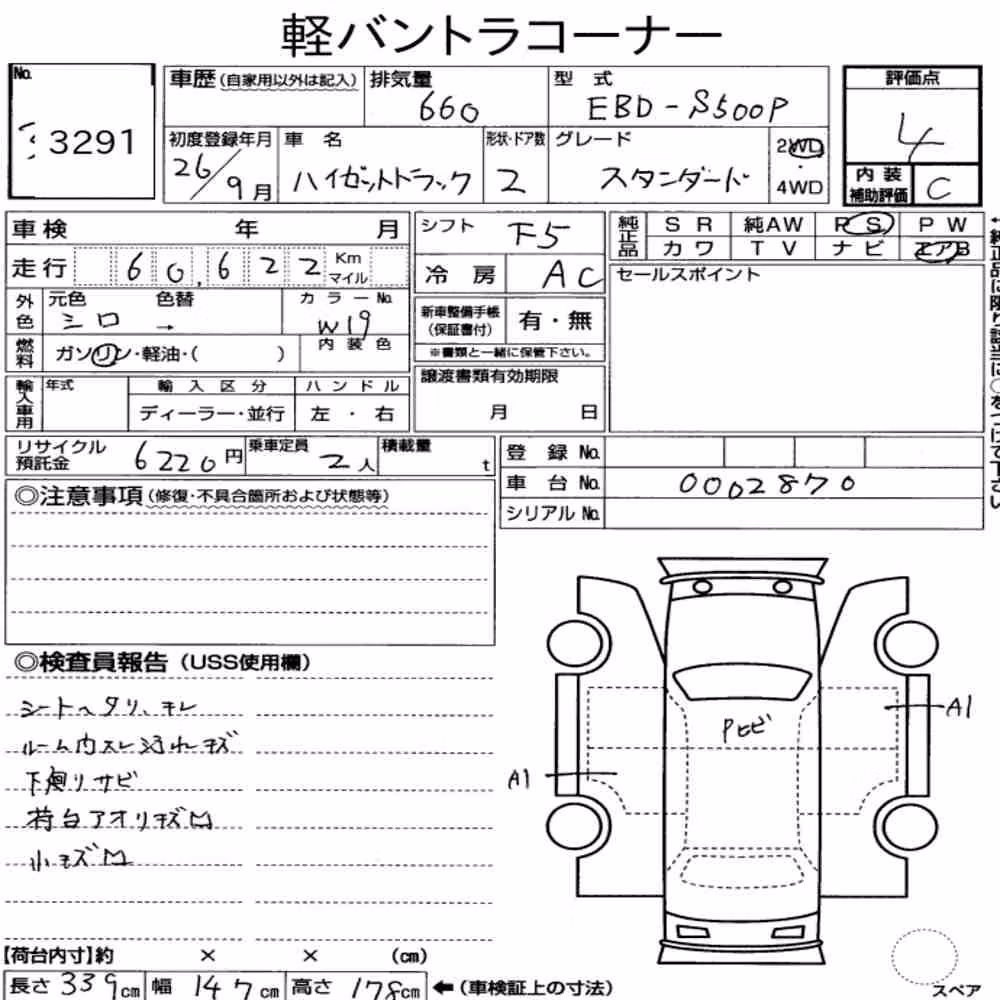 軽バントラコーナー
No.
3291
車歴(自家用以外は記入)
排気量
660
型 式
EBD-S500P
評価点
4
初度登録年月
26/9月
車 名
ハイゼットトラック
形状・ドア数
2
グレード
スタンダード
2WD
・
4WD
内装
補助評価
C
車検 年 月
走行 60,622 Km マイル
シフト F5
冷房 AC
純正品
SR 純AW PS PW
カワ TV ナビ エアB
セールスポイント
外色
元色 シロ
色替 →
カラーNo.
W19
燃料
ガソリン・軽油・( )
内装色
新車整備手帳
(保証書付)
有・無
※書類と一緒に保管下さい。
輸入車用
年式
輸入区分
ディーラー・並行
ハンドル
左・右
譲渡書類有効期限
月 日
リサイクル
預託金
6220円
乗車定員
2人
積載量
t
登録No.
車台No. 0002870
シリアルNo.
◎注意事項(修復・不具合箇所および状態等)
◎検査員報告(USS使用欄)
シートヘタリ、キレ
ルーム内スレ汚れキズ
下廻リサビ
荷台アオリキズ凹
小キズ凹
Pヒビ
A1
A1
【荷台内寸】約 × × (cm)
長さ339cm 幅147cm 高さ178cm ←(車検証上の寸法)
スペア
←純正品に限り該当に○をつけて下さい